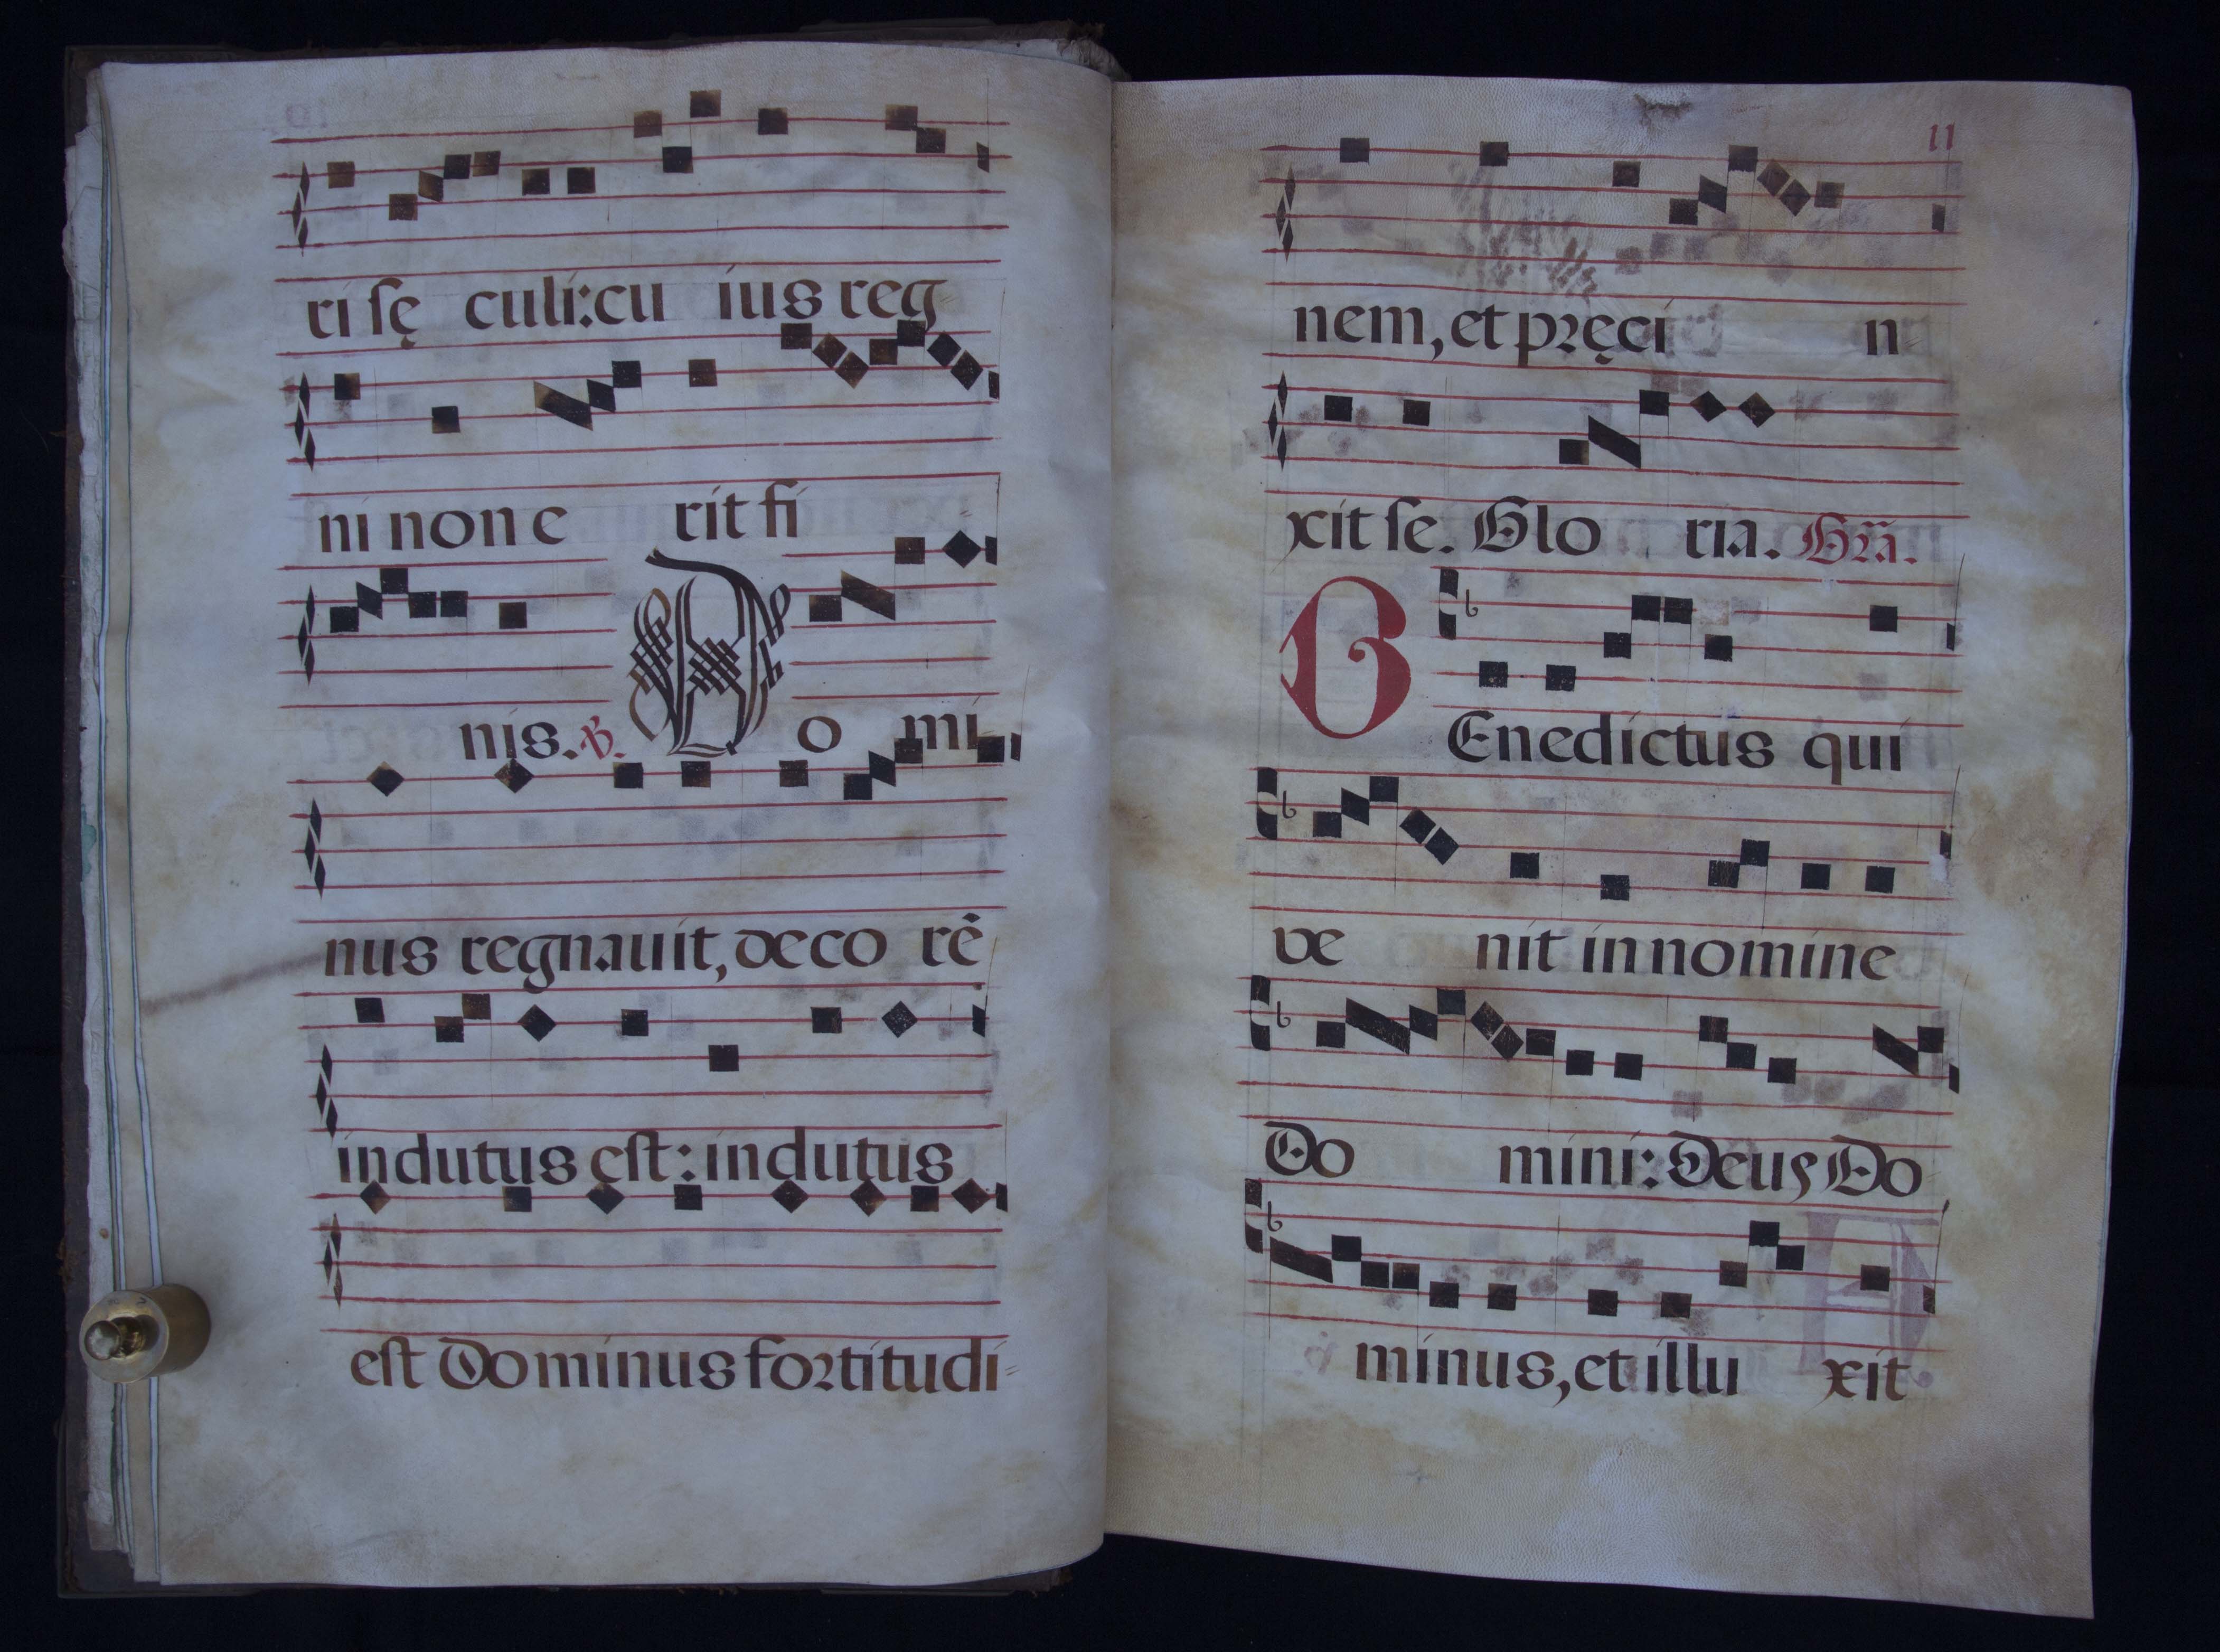 ri sę culi: cu ius reg
ni non e rit fi
nis. ℣. Do mi
nus regnauit, deco rē
indutus est: indutus
est Dominus fortitudi
11
nem, et pręci n
xit se. Glo ria. Grã.
BEnedictus qui
ve nit in nomine
Do mini: Deus Do
minus, et illu xit